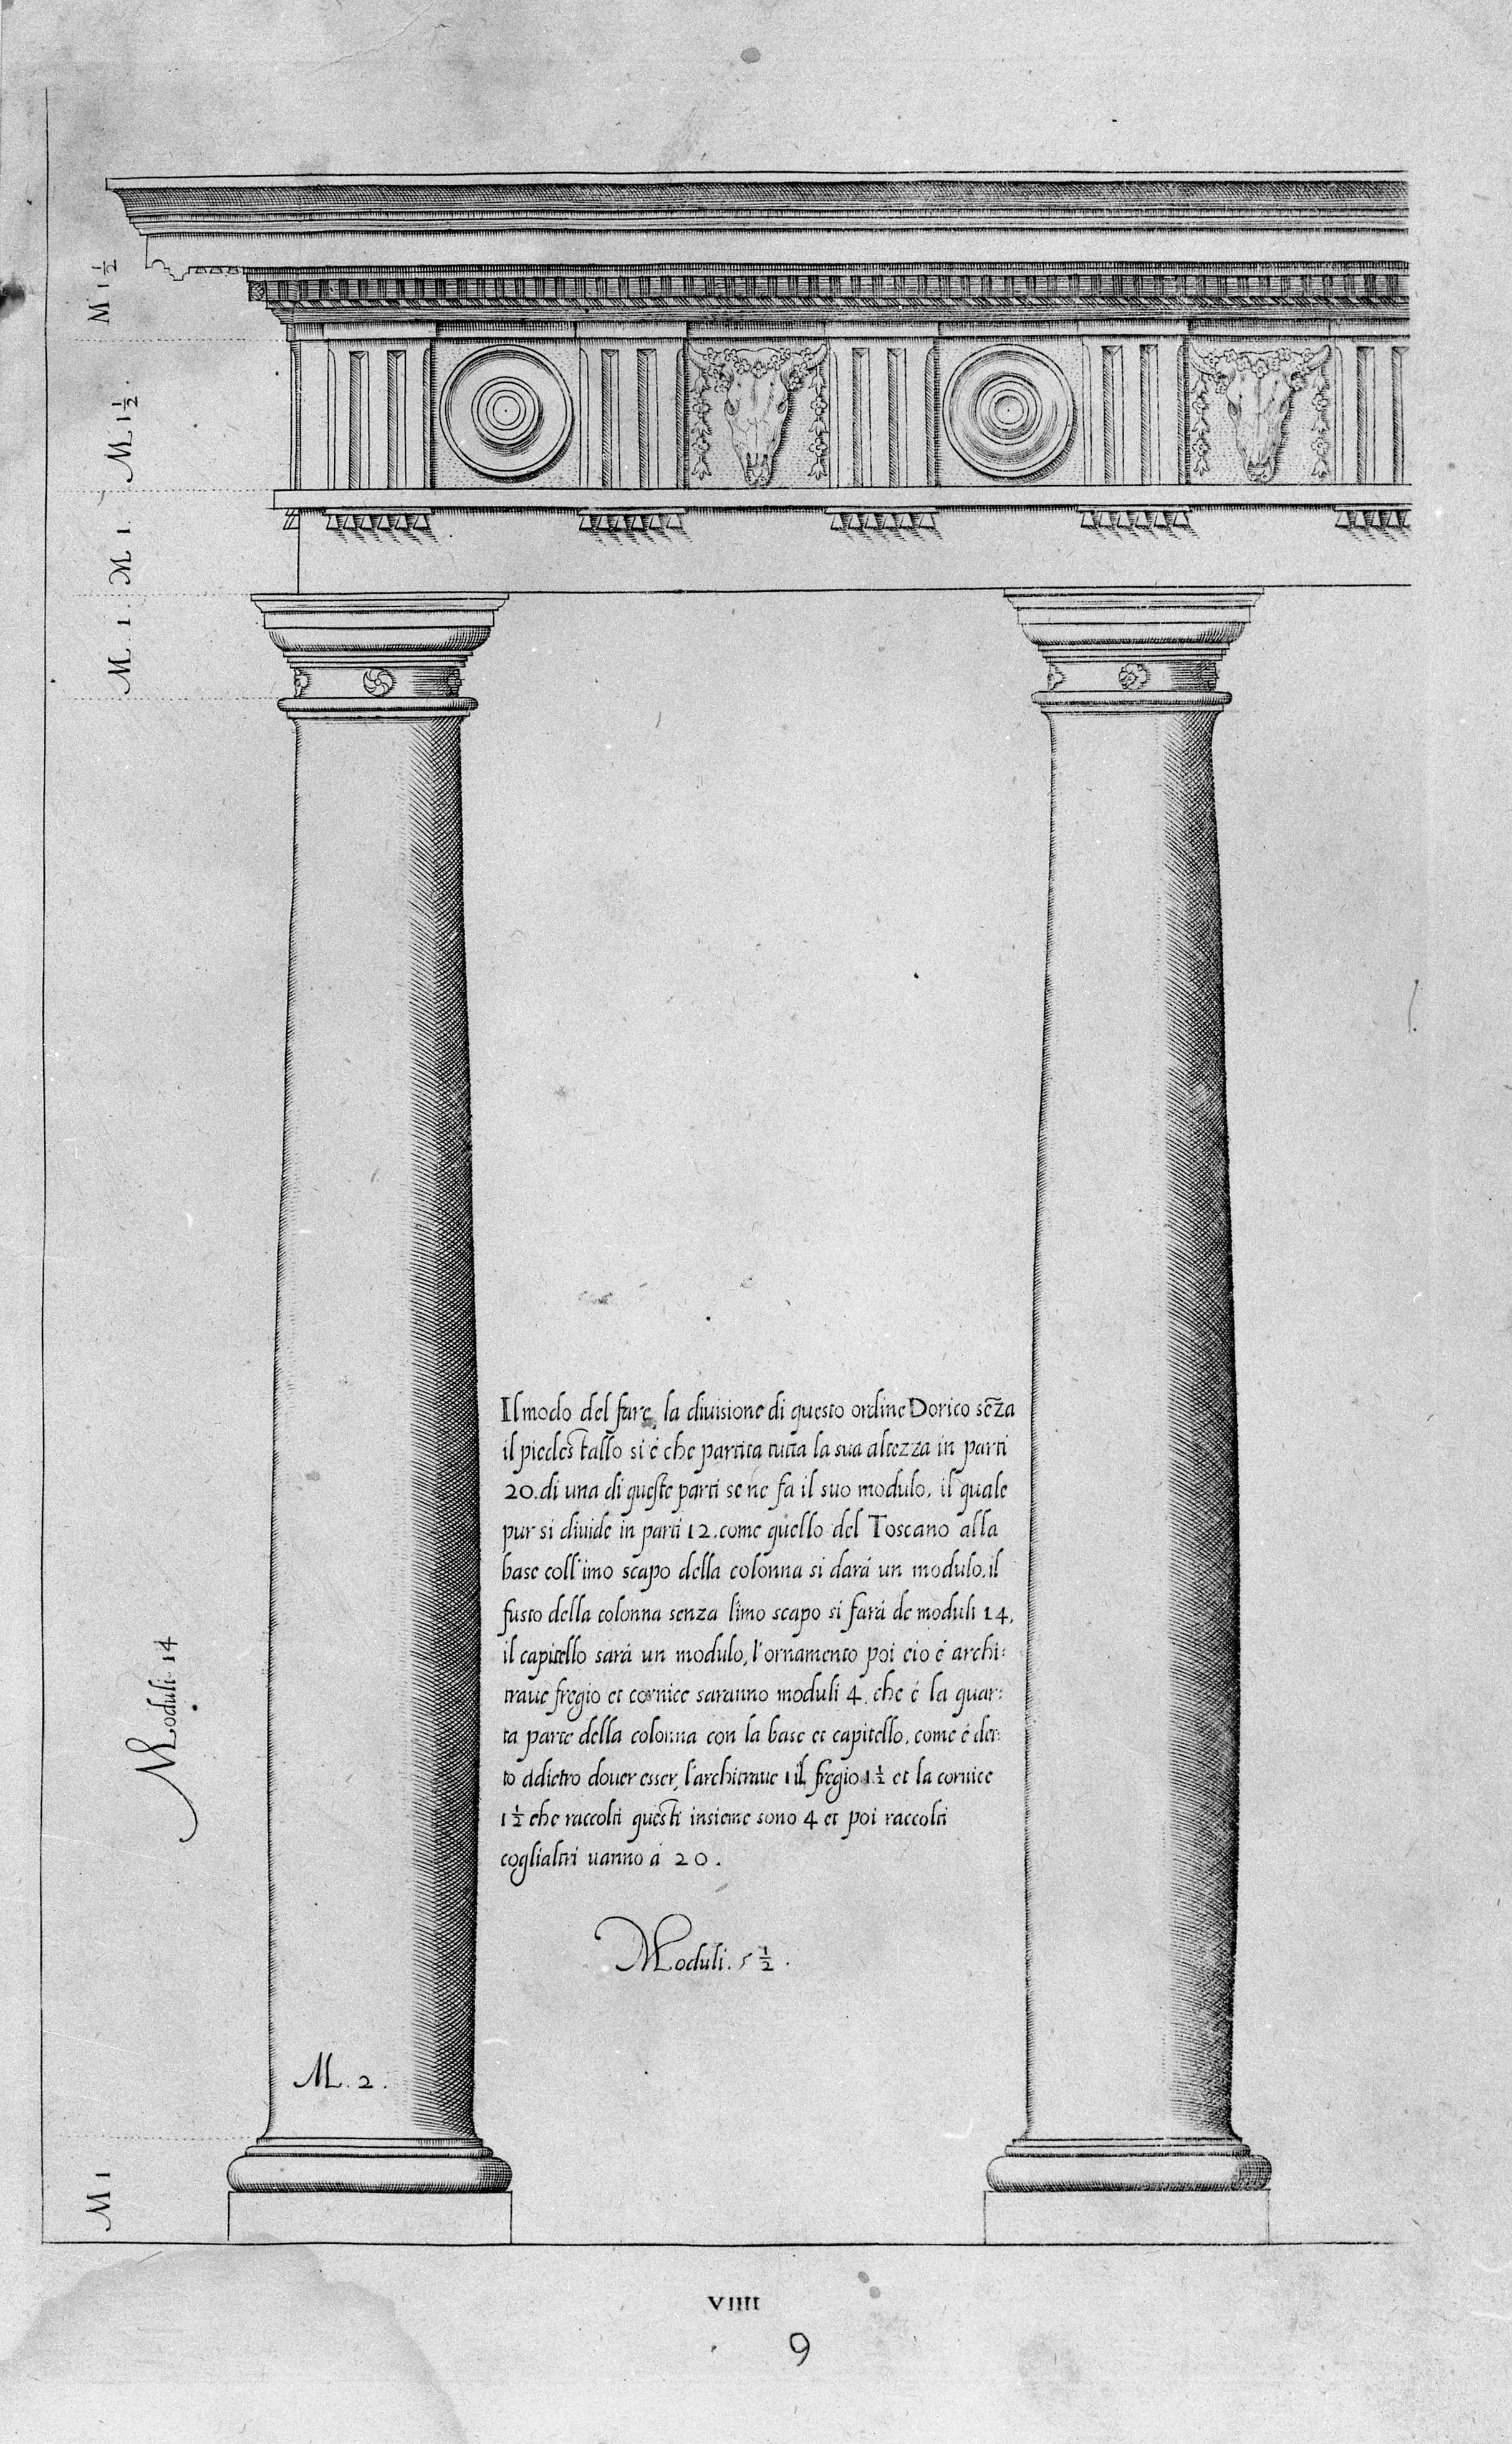 M 1 1/2
M. 1 1/2.
M 1
M. 1.
Il modo del fare la diuisione di questo ordine Dorico sēza
il piedestallo si é che partita tutta la sua altezza in parti
20. di una di queste parti se ne fa il suo modulo, il quale
pur si diuide in parti 12. come quello del Toscano alla
base coll'imo scapo della colonna si dará un modulo, il
fusto della colonna senza l'imo scapo si fará de moduli 14,
il capitello sará un modulo, l'ornamento poi cio é archi:
traue fregio et cornice saranno moduli 4, che é la quar:
ta parte della colonna con la base et capitello, come é det:
to ddietro douer esser, l'architraue 1 il fregio 1 1/2 et la cornice
1 1/2 che raccolti questi insieme sono 4 et poi raccolti
coglialtri uanno á 20.
Moduli 14
Moduli. 5 1/2.
M. 2.
M 1
VIIII
9